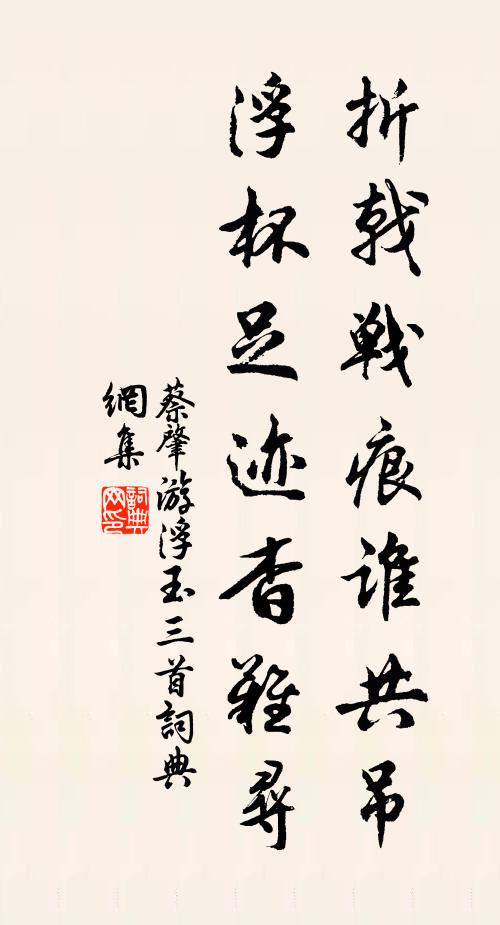 折戟戰痕誰共吊
浮杯足迹杳難尋
蔡肇游浮玉三首詞典
網集
詞典
网印